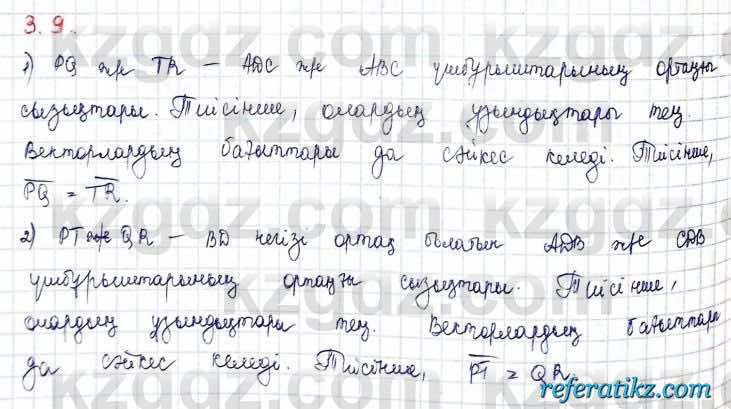 3.9.
1) PQ және TR – ADC және ABC үшбұрыштарының ортаңғы
сызықтары. Тиісінше, олардың ұзындықтары тең.
Векторлардың бағыттары да сәйкес келеді. Тиісінше,
PQ = TR.
2) PT және QR – BD негізі ортақ болатын ADB және CDB
үшбұрыштарының ортаңғы сызықтары. Тиісінше,
олардың ұзындықтары тең. Векторлардың бағыттары
да сәйкес келеді. Тиісінше, PT = QR.
kzgdz.com
referatikz.com